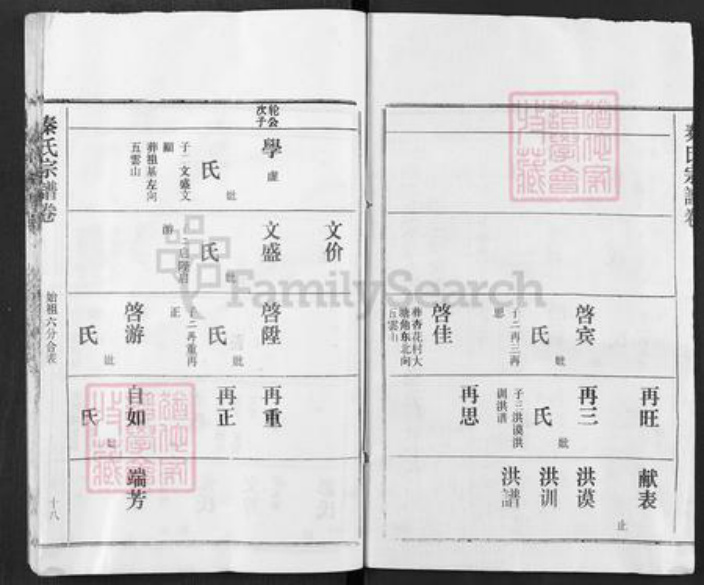 秦氏宗譜卷
献表
止
再旺
启宾
妣
氏
子二再三再
思
再三
妣
氏
子三洪谟洪
训洪谱
洪谟
洪训
洪譜
再思
启佳
葬杏花村大
塘角东北向
五雲山
轮公
次子
學虚
妣
氏
子二文盛文
葬祖墓左向
五雲山
文价
文盛
妣
氏
啓陞
妣
氏
子二再重再
正
再重
再正
啓游
妣
氏
自如
妣
氏
端芳
秦氏宗譜卷
始祖六分合表
十八
FamilySearch